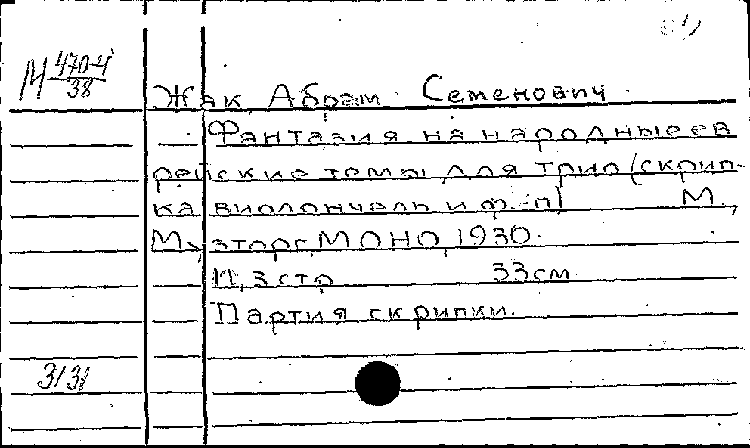 М 470-4
38
Жак Абрам Семенович
Фантазия на народные ев
рейские темы для трио (скрип-
ка виолончель и ф.-п) М.,
М, эторг, МОНО, 1930.
11, 3 стр 33 см
Партия скрипки.
3131